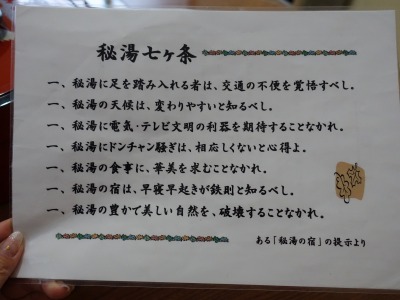 秘湯七ヶ条
一、秘湯に足を踏み入れる者は、交通の不便を覚悟すべし。
一、秘湯の天候は、変わりやすいと知るべし。
一、秘湯に電気・テレビ文明の利器を期待することなかれ。
一、秘湯にドンチャン騒ぎは、相応しくないと心得よ。
一、秘湯の食事に、華美を求むことなかれ。
一、秘湯の宿は、早寝早起きが鉄則と知るべし。
一、秘湯の豊かで美しい自然を、破壊することなかれ。
ある「秘湯の宿」の提示より